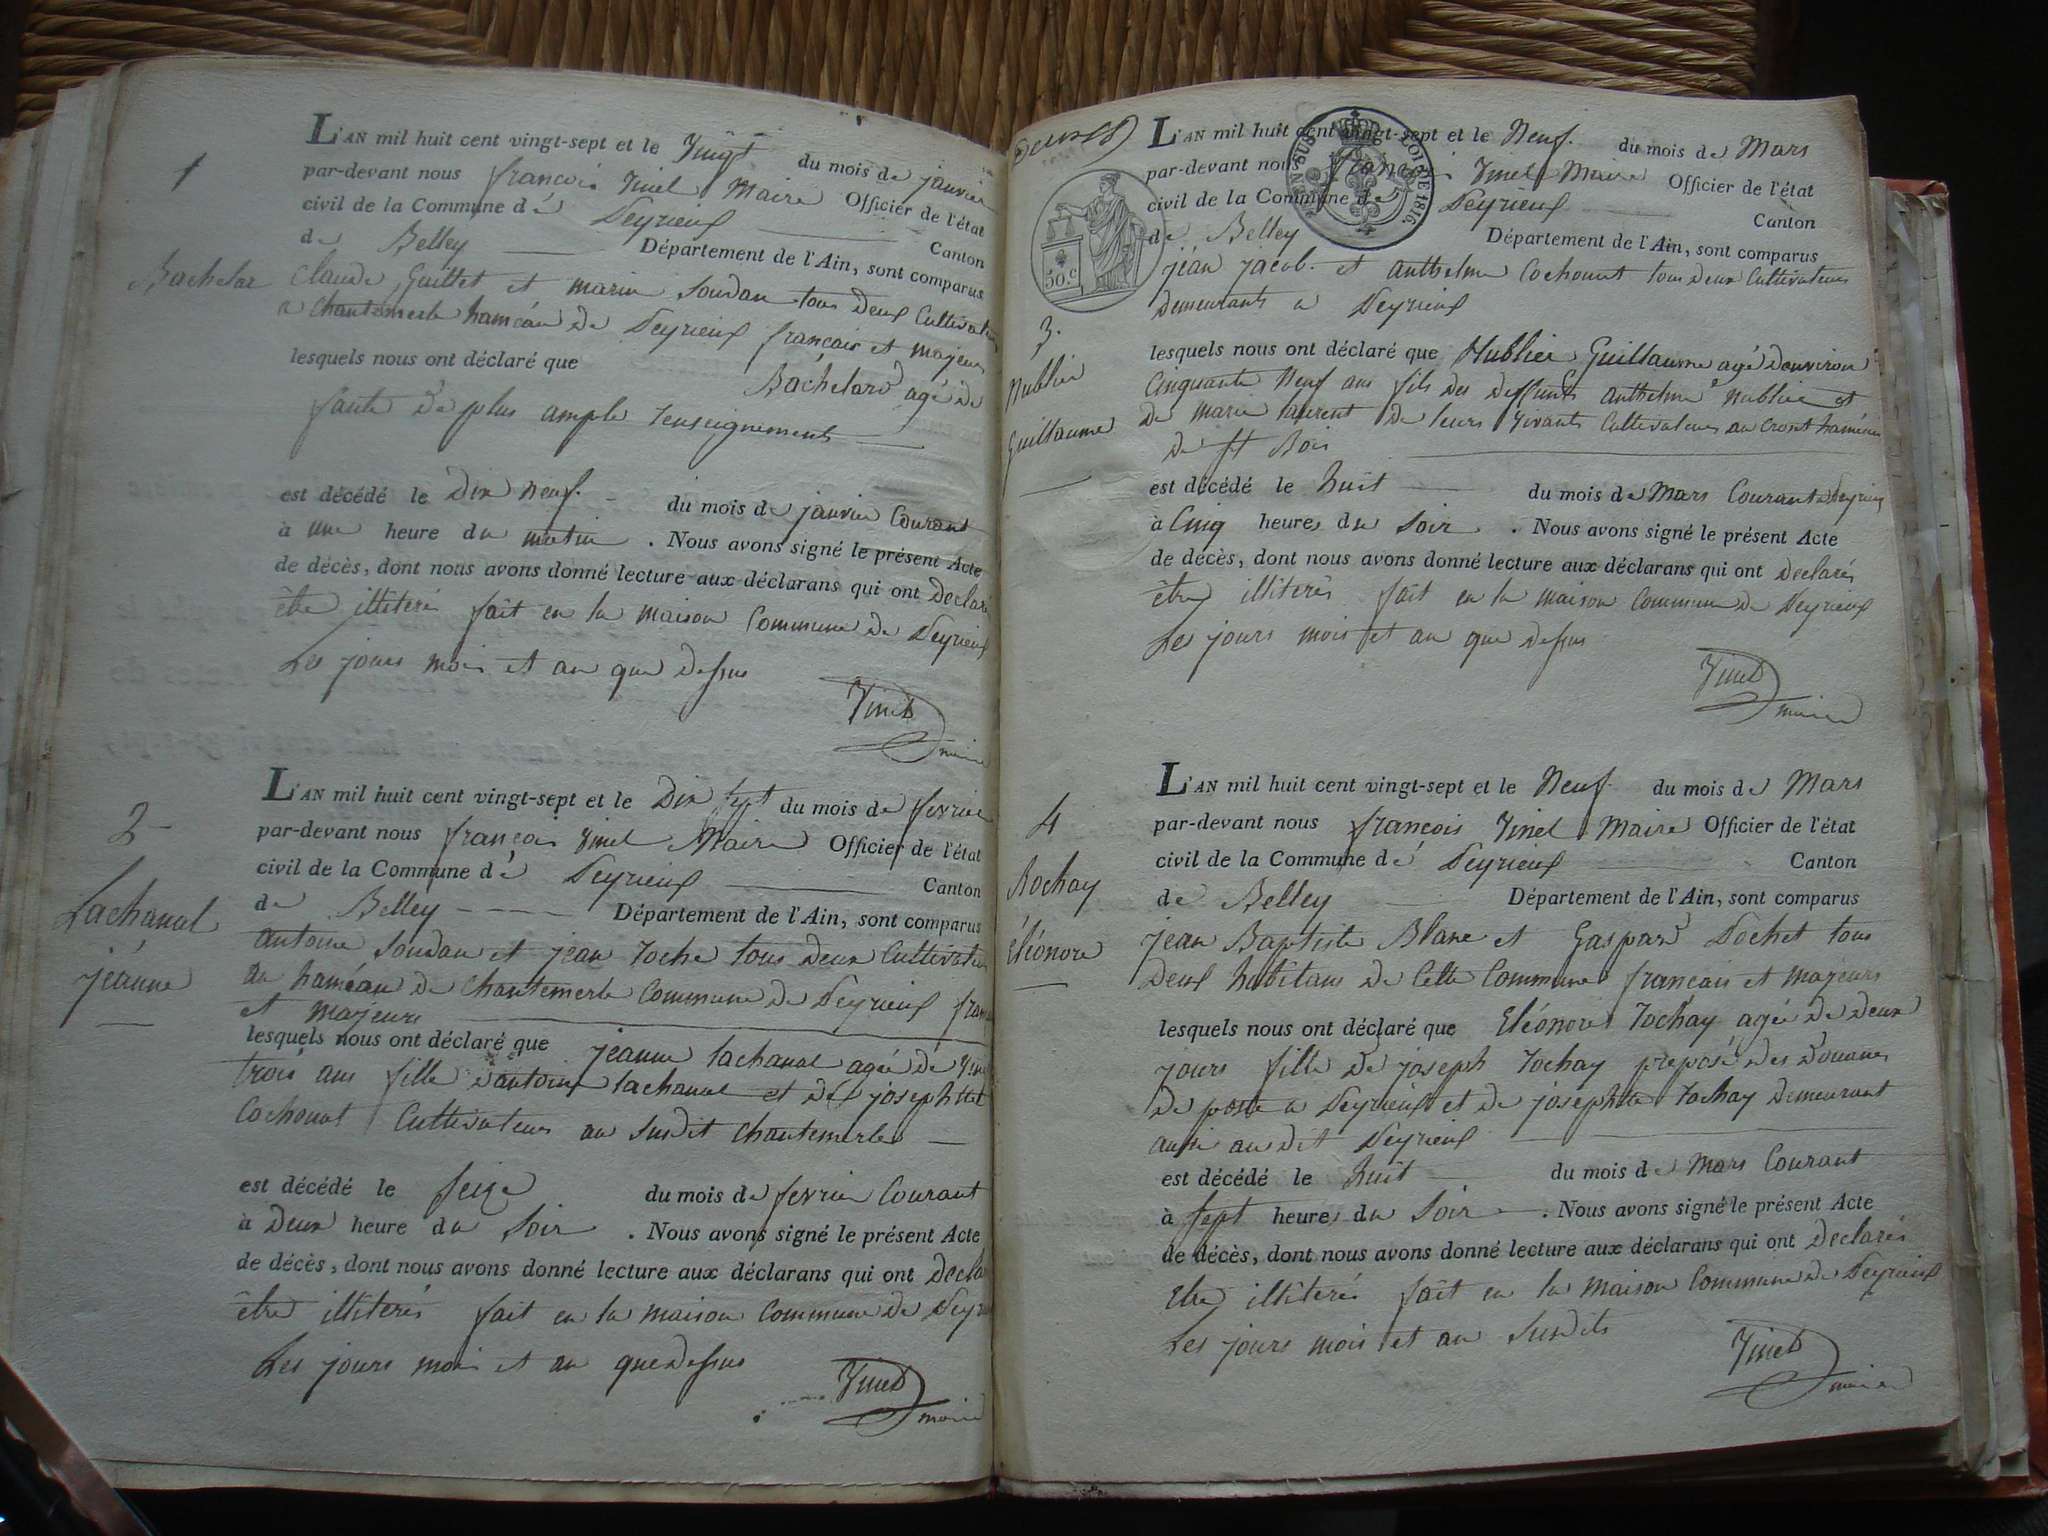 1
Bachelar
L'AN mil huit cent vingt-sept et le Vingt du mois de janvier
par-devant nous francois Vinel Maire Officier de l'état
civil de la Commune de Peyrieux Canton
de Belley Département de l'Ain, sont comparus
Claude Guillet et marin Soudan tous deux Cultivateurs
a Chantemerle haméau de Peyrieux francais et majeurs
lesquels nous ont déclaré que Bachelard agé de
faute de plus ample renseignements
est décédé le Dix Neuf du mois de janvier Courant
à une heure du matin . Nous avons signé le présent Acte
de décès, dont nous avons donné lecture aux déclarans qui ont Declaré
être illiterés fait en la maison Commune de Peyrieux
Les jours mois et an que dessus
Vinel
maire
2
Lachanal
jeanne
L'AN mil huit cent vingt-sept et le Dix sept du mois de fevrier
par-devant nous francois Vinel Maire Officier de l'état
civil de la Commune de Peyrieux Canton
de Belley Département de l'Ain, sont comparus
antoine Soudan et jean roche tous deux Cultivateurs
au haméau de Chantemerle Commune de Peyrieux
et majeurs
lesquels nous ont déclaré que jeanne lachanal agée de
trois ans fille d'antoine lachanal et de josephtte
Cochonat Cultivateurs au susdit Chantemerle
est décédé le seize du mois de fevrier Courant
à Deux heure du Soir . Nous avons signé le présent Acte
de décès, dont nous avons donné lecture aux déclarans qui ont
être illiterés fait en la maison Commune de
Les jours mois et an que dessus
Vinel
maire
50.c
LOI DE 1816.
3.
Nublier
Guillaume
L'AN mil huit cent vingt-sept et le Neuf du mois de Mars
par-devant nous Francois Vinel Maire Officier de l'état
civil de la Commune de Peyrieux Canton
de Belley Département de l'Ain, sont comparus
jean jacob et anthelme Cochonat tous deux Cultivateurs
demeurants a Peyrieux
lesquels nous ont déclaré que Nublier Guillaume agé d'environ
Cinquante Neuf ans fils des deffunts anthelme Nublier et
de marie laurent de leurs vivants Cultivateurs au
de st Bois
est décédé le huit du mois de Mars Courant a Peyrieux
à Cinq heures du Soir . Nous avons signé le présent Acte
de décès, dont nous avons donné lecture aux déclarans qui ont Declarés
être illiterés fait en la maison Commune de Peyrieux
Les jours mois et an que dessus
Vinel
maire
4
Rochay
Éléonore
L'AN mil huit cent vingt-sept et le Neuf du mois de Mars
par-devant nous francois Vinel Maire Officier de l'état
civil de la Commune de Peyrieux Canton
de Belley Département de l'Ain, sont comparus
jean Baptiste Blanc et Gaspard Pochet tous
deux habitans de Cette Commune francais et majeurs
lesquels nous ont déclaré que Eléonore rochay agée de deux
jours fille de joseph rochay preposé des Douanes
de poste a Peyrieux et de josephtte rochay demeurant
aussi au dit Peyrieux
est décédé le huit du mois de Mars Courant
à sept heures du Soir . Nous avons signé le présent Acte
de décès, dont nous avons donné lecture aux déclarans qui ont Declarés
Etre illiterés fait en la maison Commune de Peyrieux
Les jours mois et an susdits
Vinel
maire